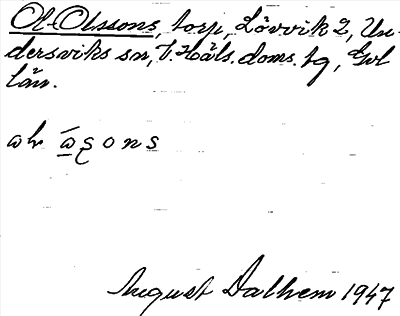 Ol-Olssons, torp, Lövvik 2, Un-
dersviks sn, V. Häls. doms. tg, Gvl
län.
August Dalhem 1947